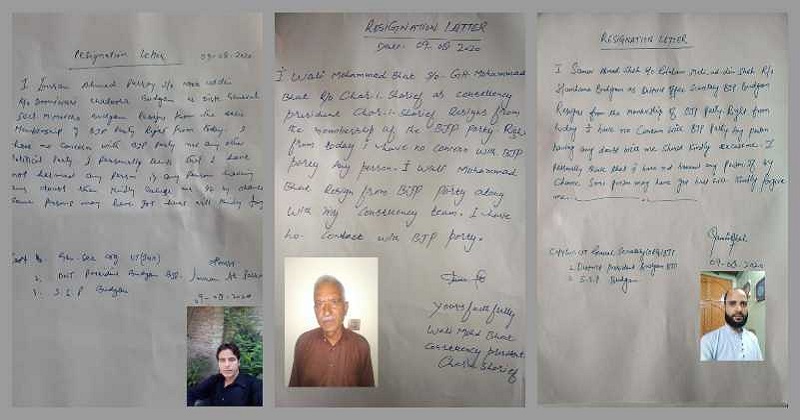 Resignation Letter 09-08-2020
I Imran Ahmad Parray S/o
R/o Chadoora Budgam as Distt General
Sect. Budgam Resign from the
Membership of BJP Party Right From Today. I
have no concern with BJP party nor any other
Political Party. I Personally that I have
not harmed any person if any Person having
any doubt then Kindly me by chance
Some Persons may have got hurt will Kindly
Gen. Sec org UT (J&K)
2. Distt President Budgam BJP.
3. S.S.P Budgam
09-08-2020
RESIGNATION LETTER
Date. 09.08.2020
I Wali Mohammad Bhat S/o- Gh. Mohammad
Bhat R/o Chari. Sharief as constiency
president Chari. Sharief Resigns from
the membership of the BJP party. Right
from today i have no concern with BJP
party Any person. I Wali Mohammad
Bhat Resign from BJP party along
with my constiency team. I have
no contact with BJP party.
yours faithfully
Wali Mohd Bhat
constiency president
Chari Sharief
RESIGNATION LETTER
I Shah S/o Ghulam Mohi-ud-din Shah R/o
Budgam as District Office Secretary BJP Budgam
Resigns from the membership of BJP Party. Right from
today I have no Concern with BJP. Any person
having any doubt with me Should Kindly
Personally that i have not harmed any Person. If by
Chance Some person may have got hurt will Kindly forgive
me.
Copy to:- UT General Secretary (ORG) BJP
2. District President Budgam BJP
3. S.S.P Budgam
09-08-2020